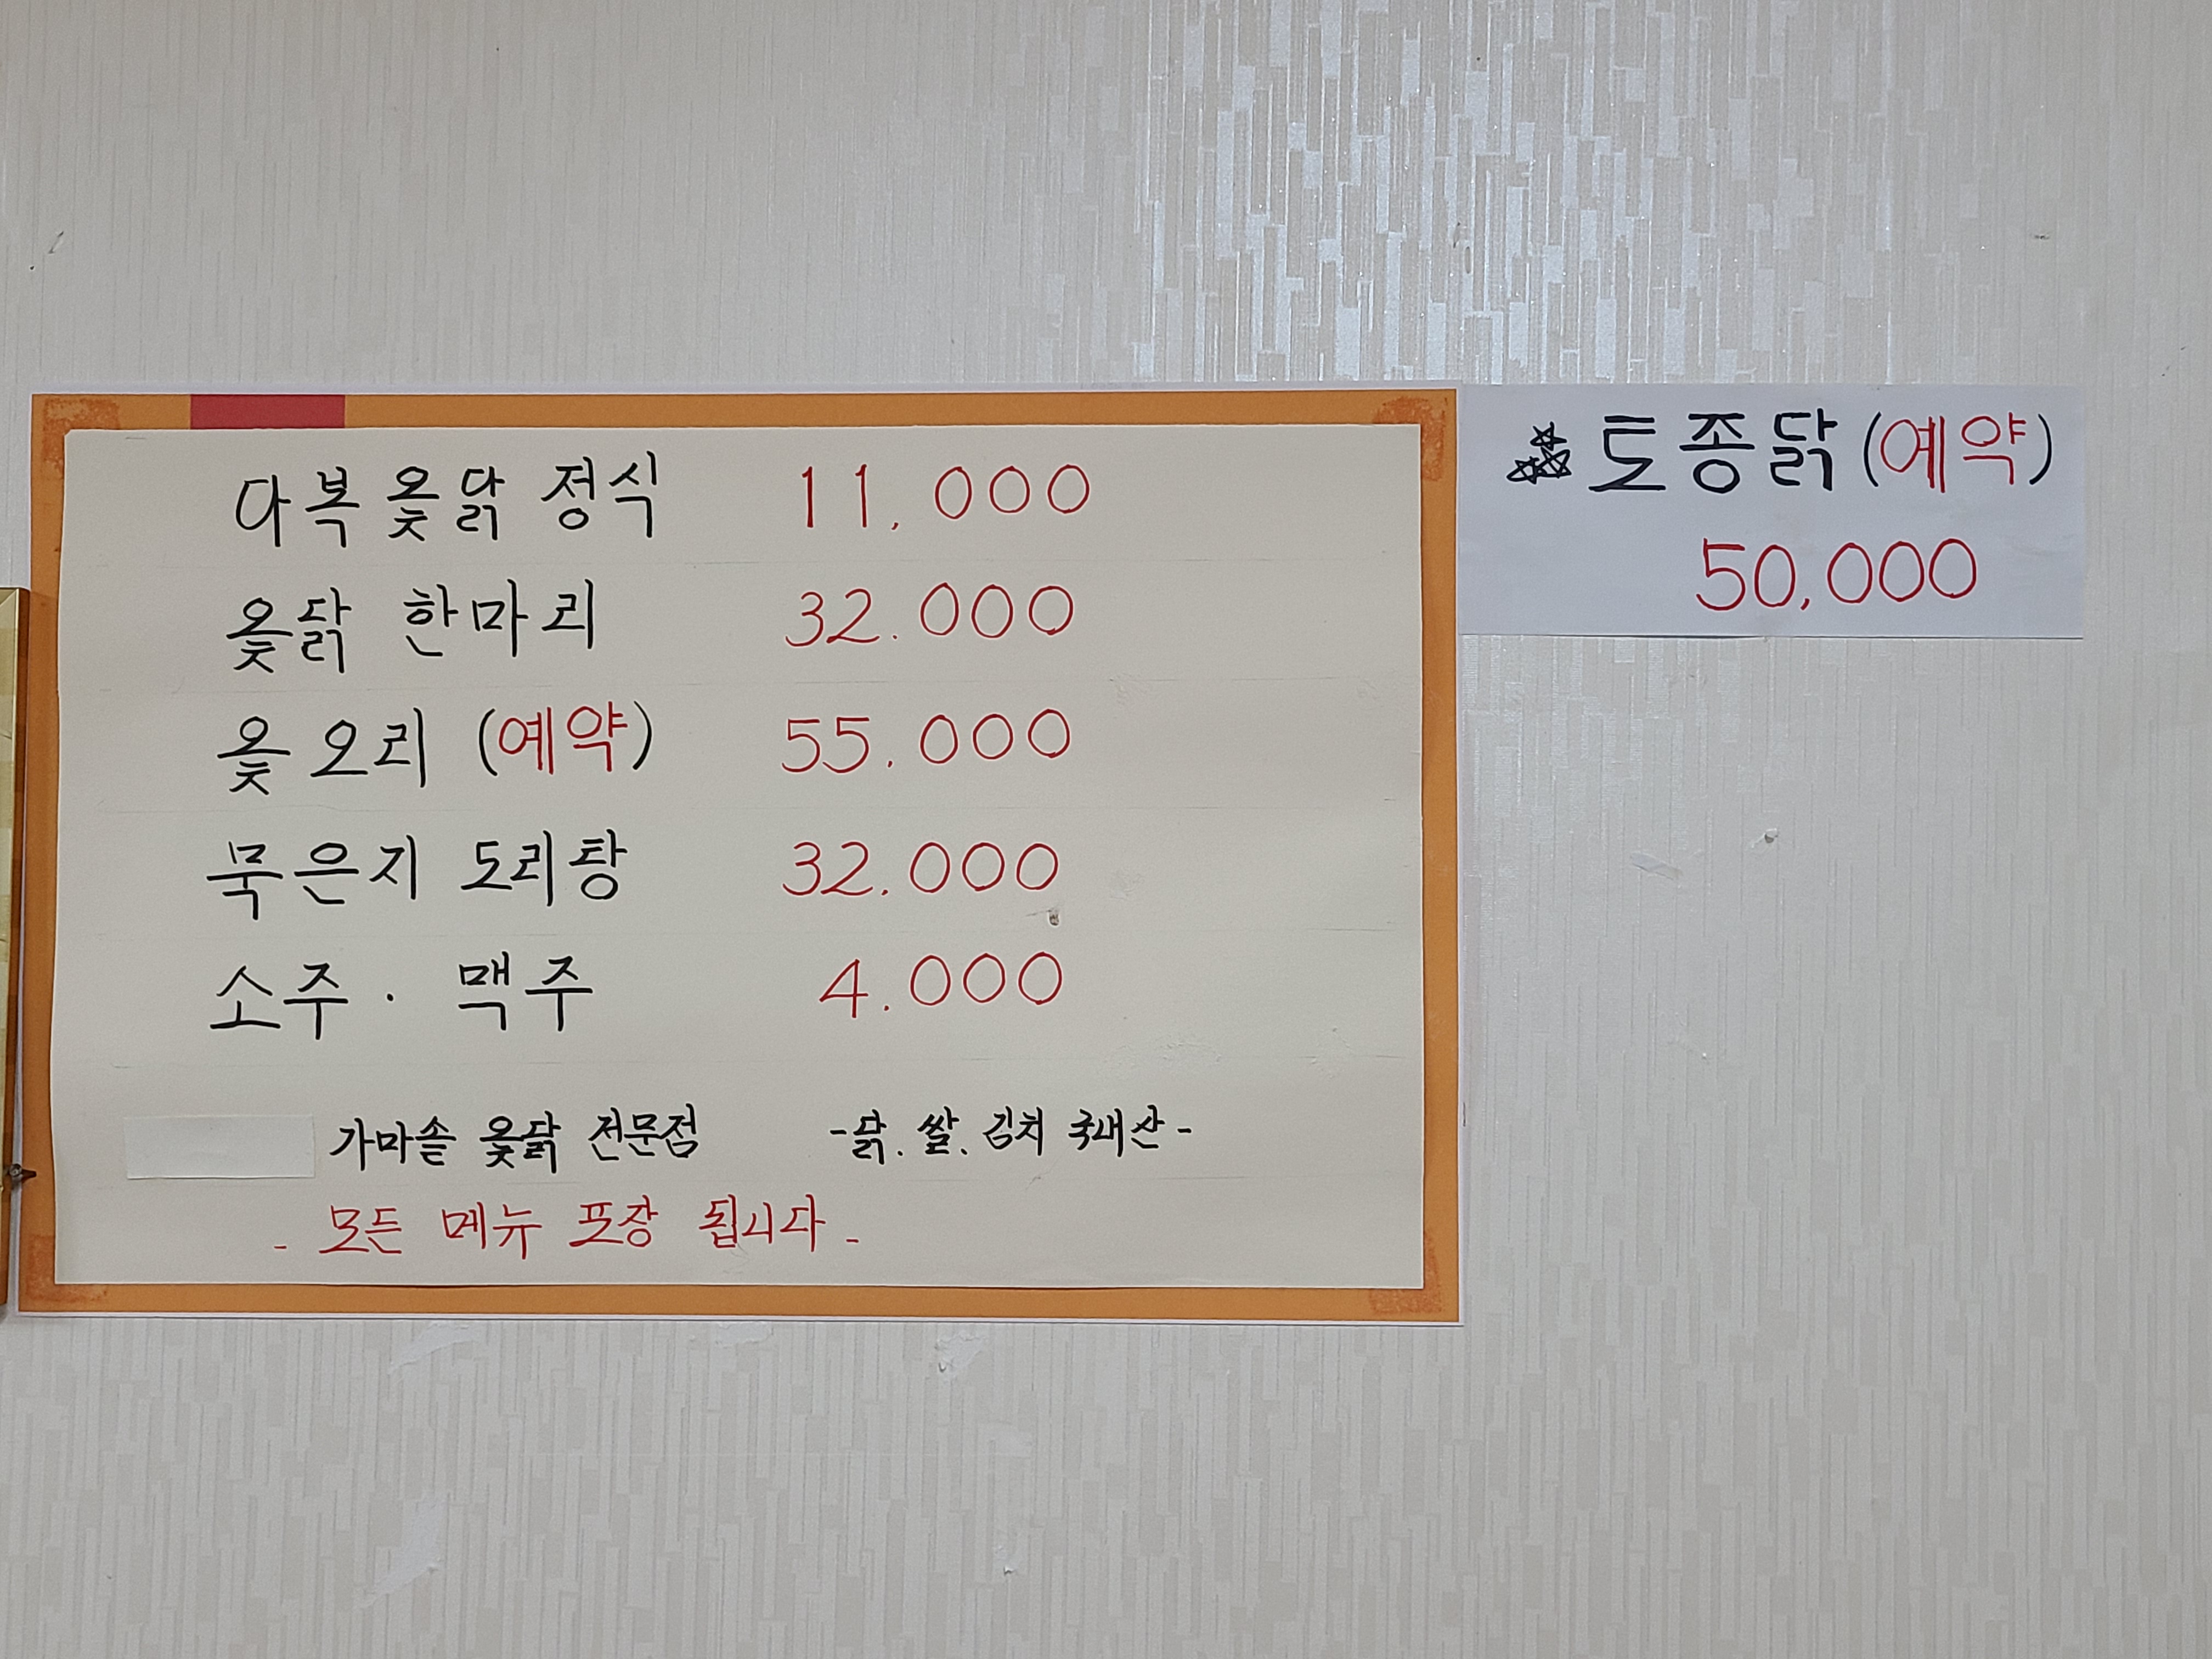 다복 옻닭 정식 11,000
옻닭 한마리 32.000
옻오리 (예약) 55.000
묵은지 도리탕 32.000
소주 · 맥주 4.000
가마솥 옻닭 전문점 -닭. 쌀. 김치 국내산-
- 모든 메뉴 포장 됩니다 -
토종닭 (예약)
50,000